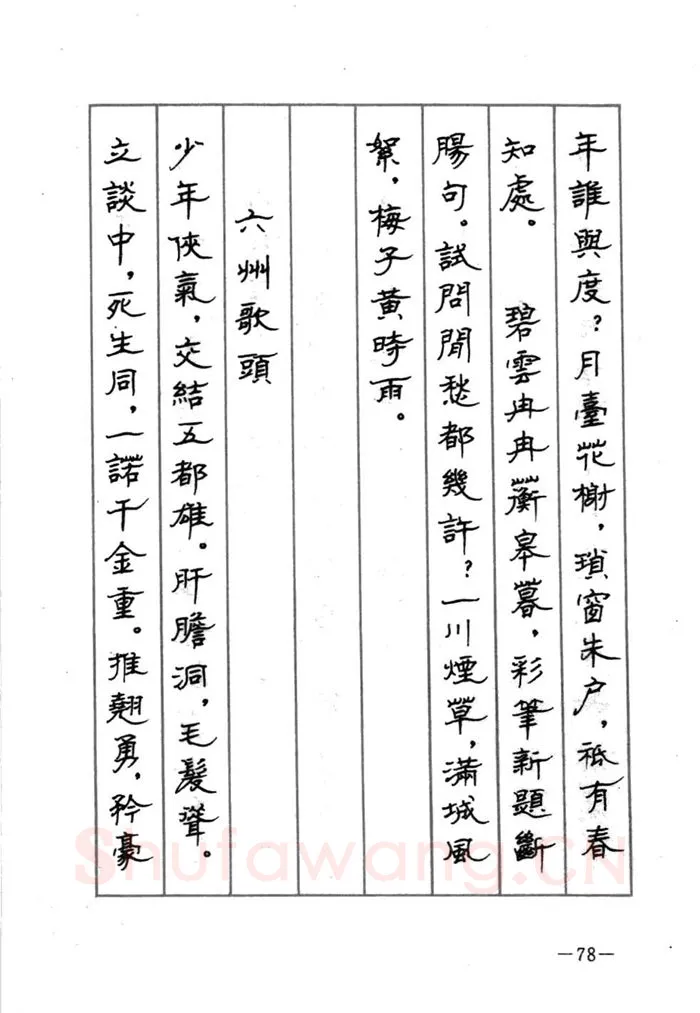 年誰與度？月臺花榭，瑣窗朱户，祗有春
知處。　碧雲冉冉蘅皋暮，彩筆新題斷
腸句。試問閒愁都幾許？一川煙草，滿城風
絮，梅子黄時雨。
六州歌頭
少年俠氣，交結五都雄。肝膽洞，毛髮聳。
立談中，死生同，一諾千金重。推翹勇，矜豪
Shufawang.CN
—78—